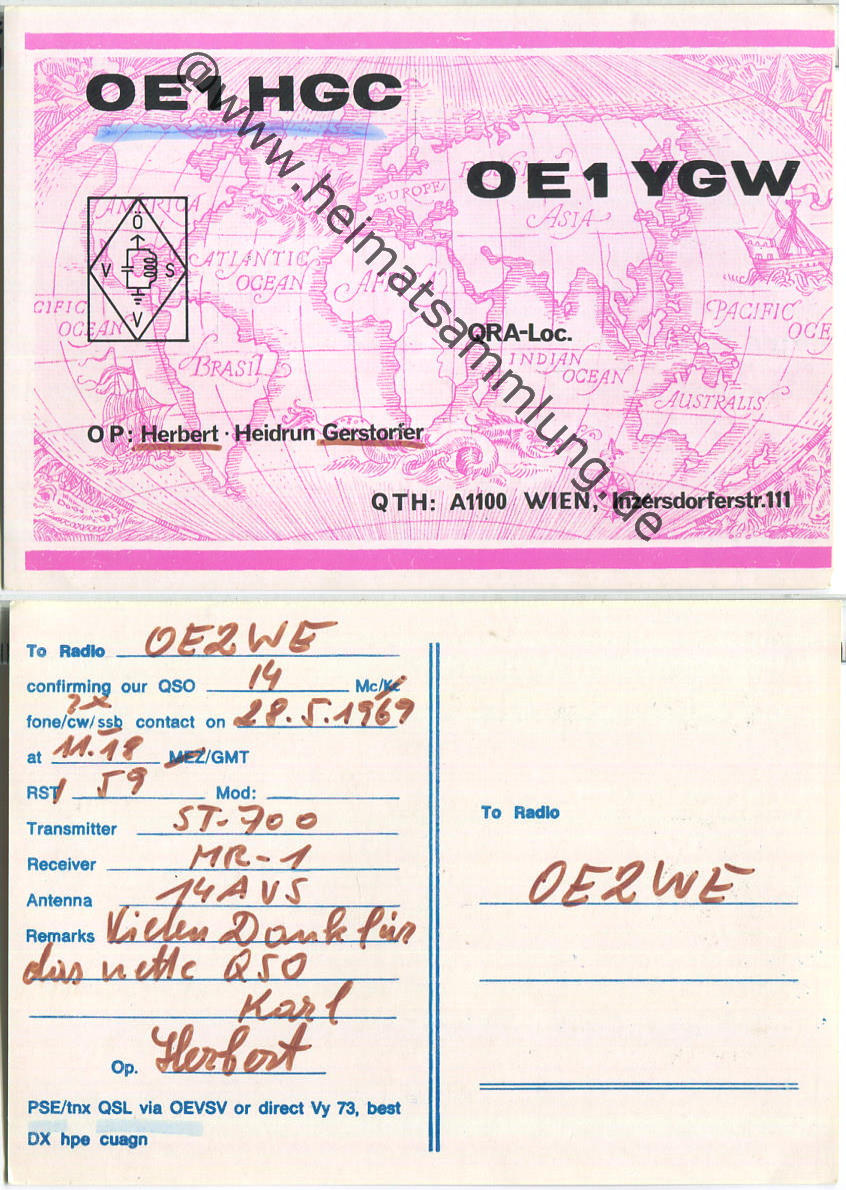 OE1HGC
OE1YGW
EUROPE
ASIA
AMERICA
ATLANTIC
OCEAN
AFRICA
Ö
V S
V
PACIFIC
OCEAN
CIFIC
OCEAN
QRA-Loc.
INDIAN
OCEAN
BRASIL
AUSTRALIS
OP: Herbert · Heidrun Gerstorfer
QTH: A1100 WIEN, Inzersdorferstr.111
@www.heimatsammlung.de
To Radio OE2WE
confirming our QSO 14 Mc/Kc
2x
fone/cw/ssb contact on 28.5.1969
at 11.18 MEZ/GMT
RST 59 Mod:
Transmitter ST-700
Receiver MR-1
Antenna 14AVS
Remarks Vielen Dank für
das nette QSO
Karl
Op. Herbert
PSE/tnx QSL via OEVSV or direct Vy 73, best
DX hpe cuagn
To Radio
OE2WE